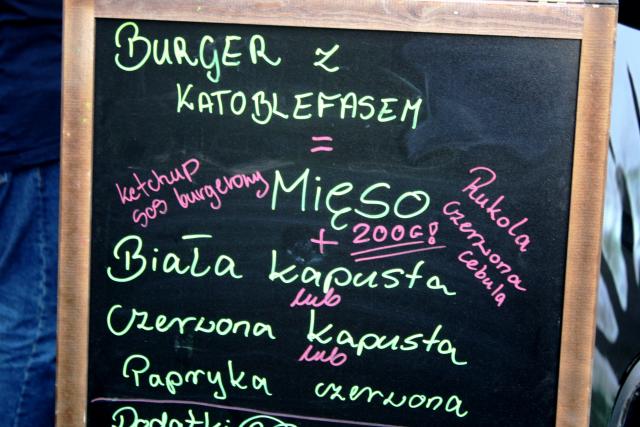 BURGER Z
KATOBLEFASEM
=
ketchup
sos burgerowy
MIĘSO
+ 200G!
Rukola
czerwona
cebula
Biała kapusta
lub
Czerwona kapusta
lub
Papryka czerwona
Dodatki